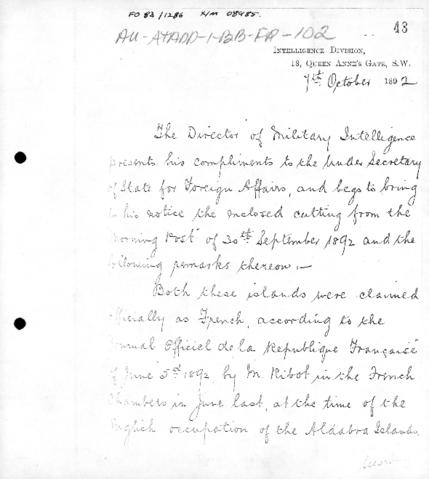 FO 83/1286 K/M 08985.
AU-ATADD-1-BB-FR-102
43
INTELLIGENCE DIVISION,
18, QUEEN ANNE'S GATE, S.W.
7th October 1892
The Director of Military Intelligence
presents his compliments to the Under Secretary
of State for Foreign Affairs, and begs to bring
to his notice the enclosed cutting from the
Morning Post of 30th September 1892 and the
following remarks thereon:—
Both these islands were claimed
officially as French, according to the
Journal Officiel de la Republique Française
of June 5th 1892, by M. Ribot in the French
Chambers in June last, at the time of the
English occupation of the Aldabra Islands.